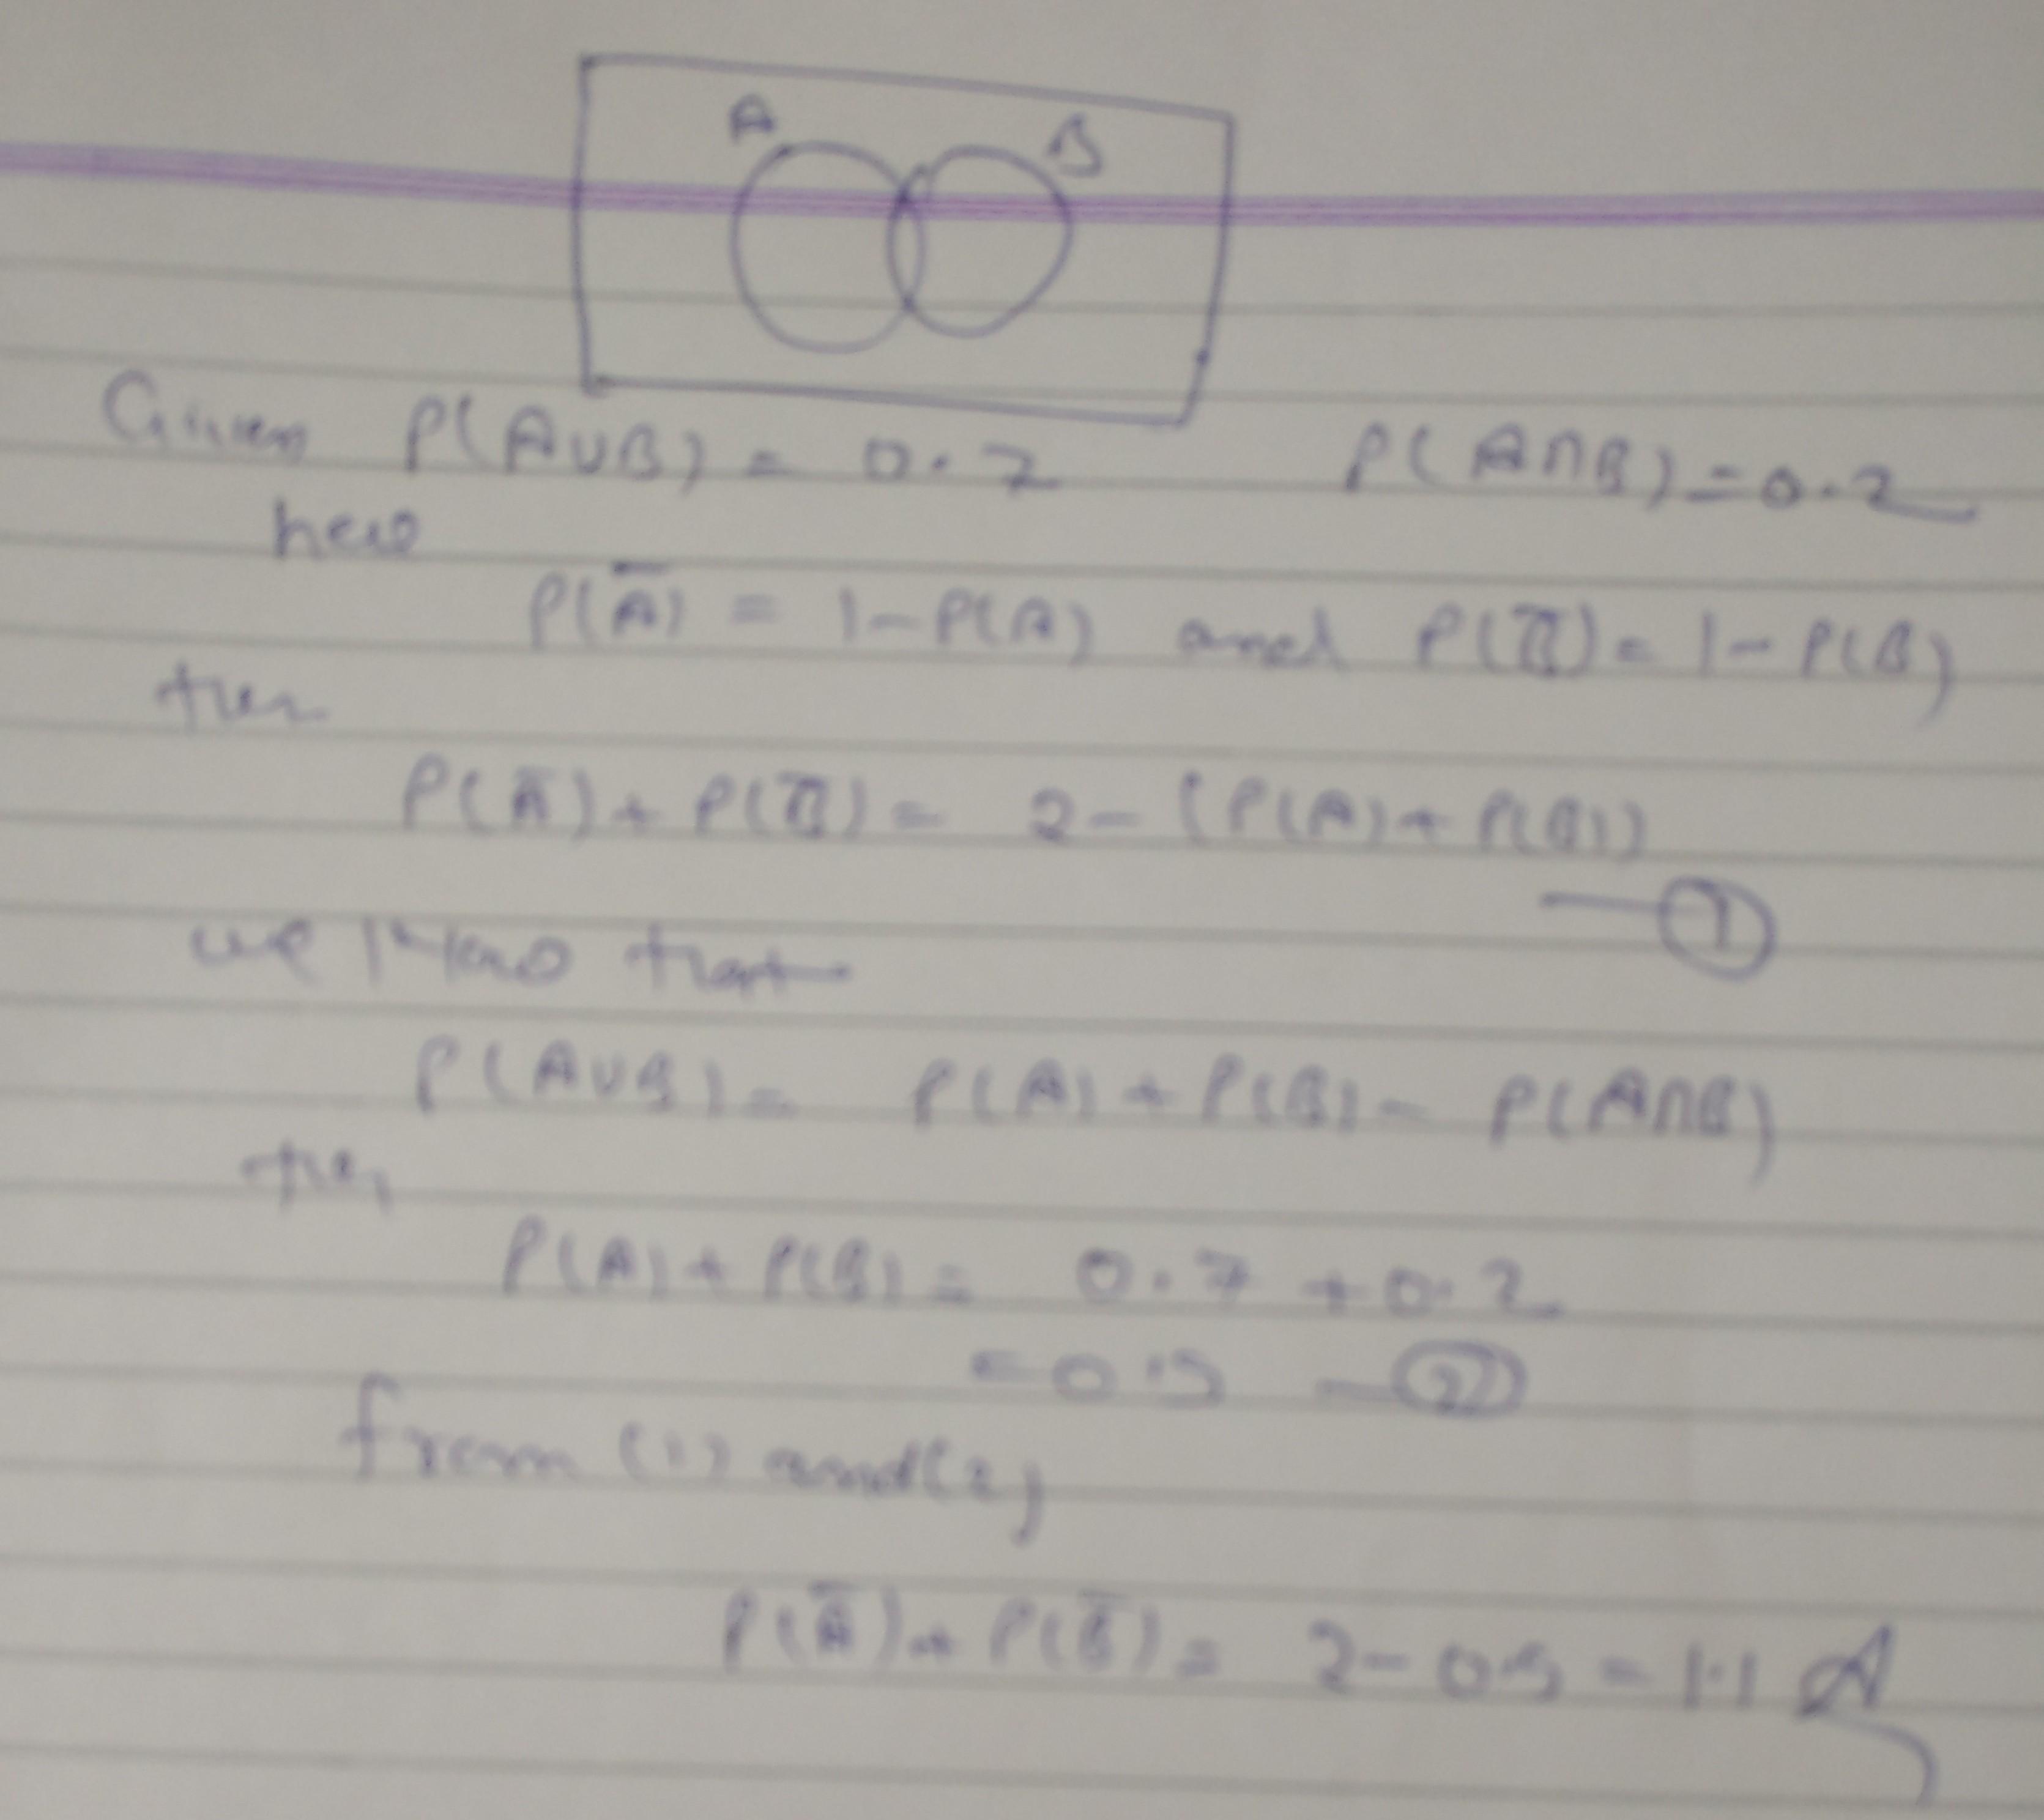 A B
Given P(A∪B) = 0.7 P(A∩B) = 0.2
here
P(A̅) = 1-P(A) and P(B̅) = 1-P(B)
then
P(A̅) + P(B̅) = 2-(P(A)+P(B))
—①
we know that
P(A∪B) = P(A) + P(B) - P(A∩B)
then
P(A) + P(B) = 0.7 + 0.2
= 0.9 —②
from (1) and (2)
P(A̅) + P(B̅) = 2-0.9 = 1.1